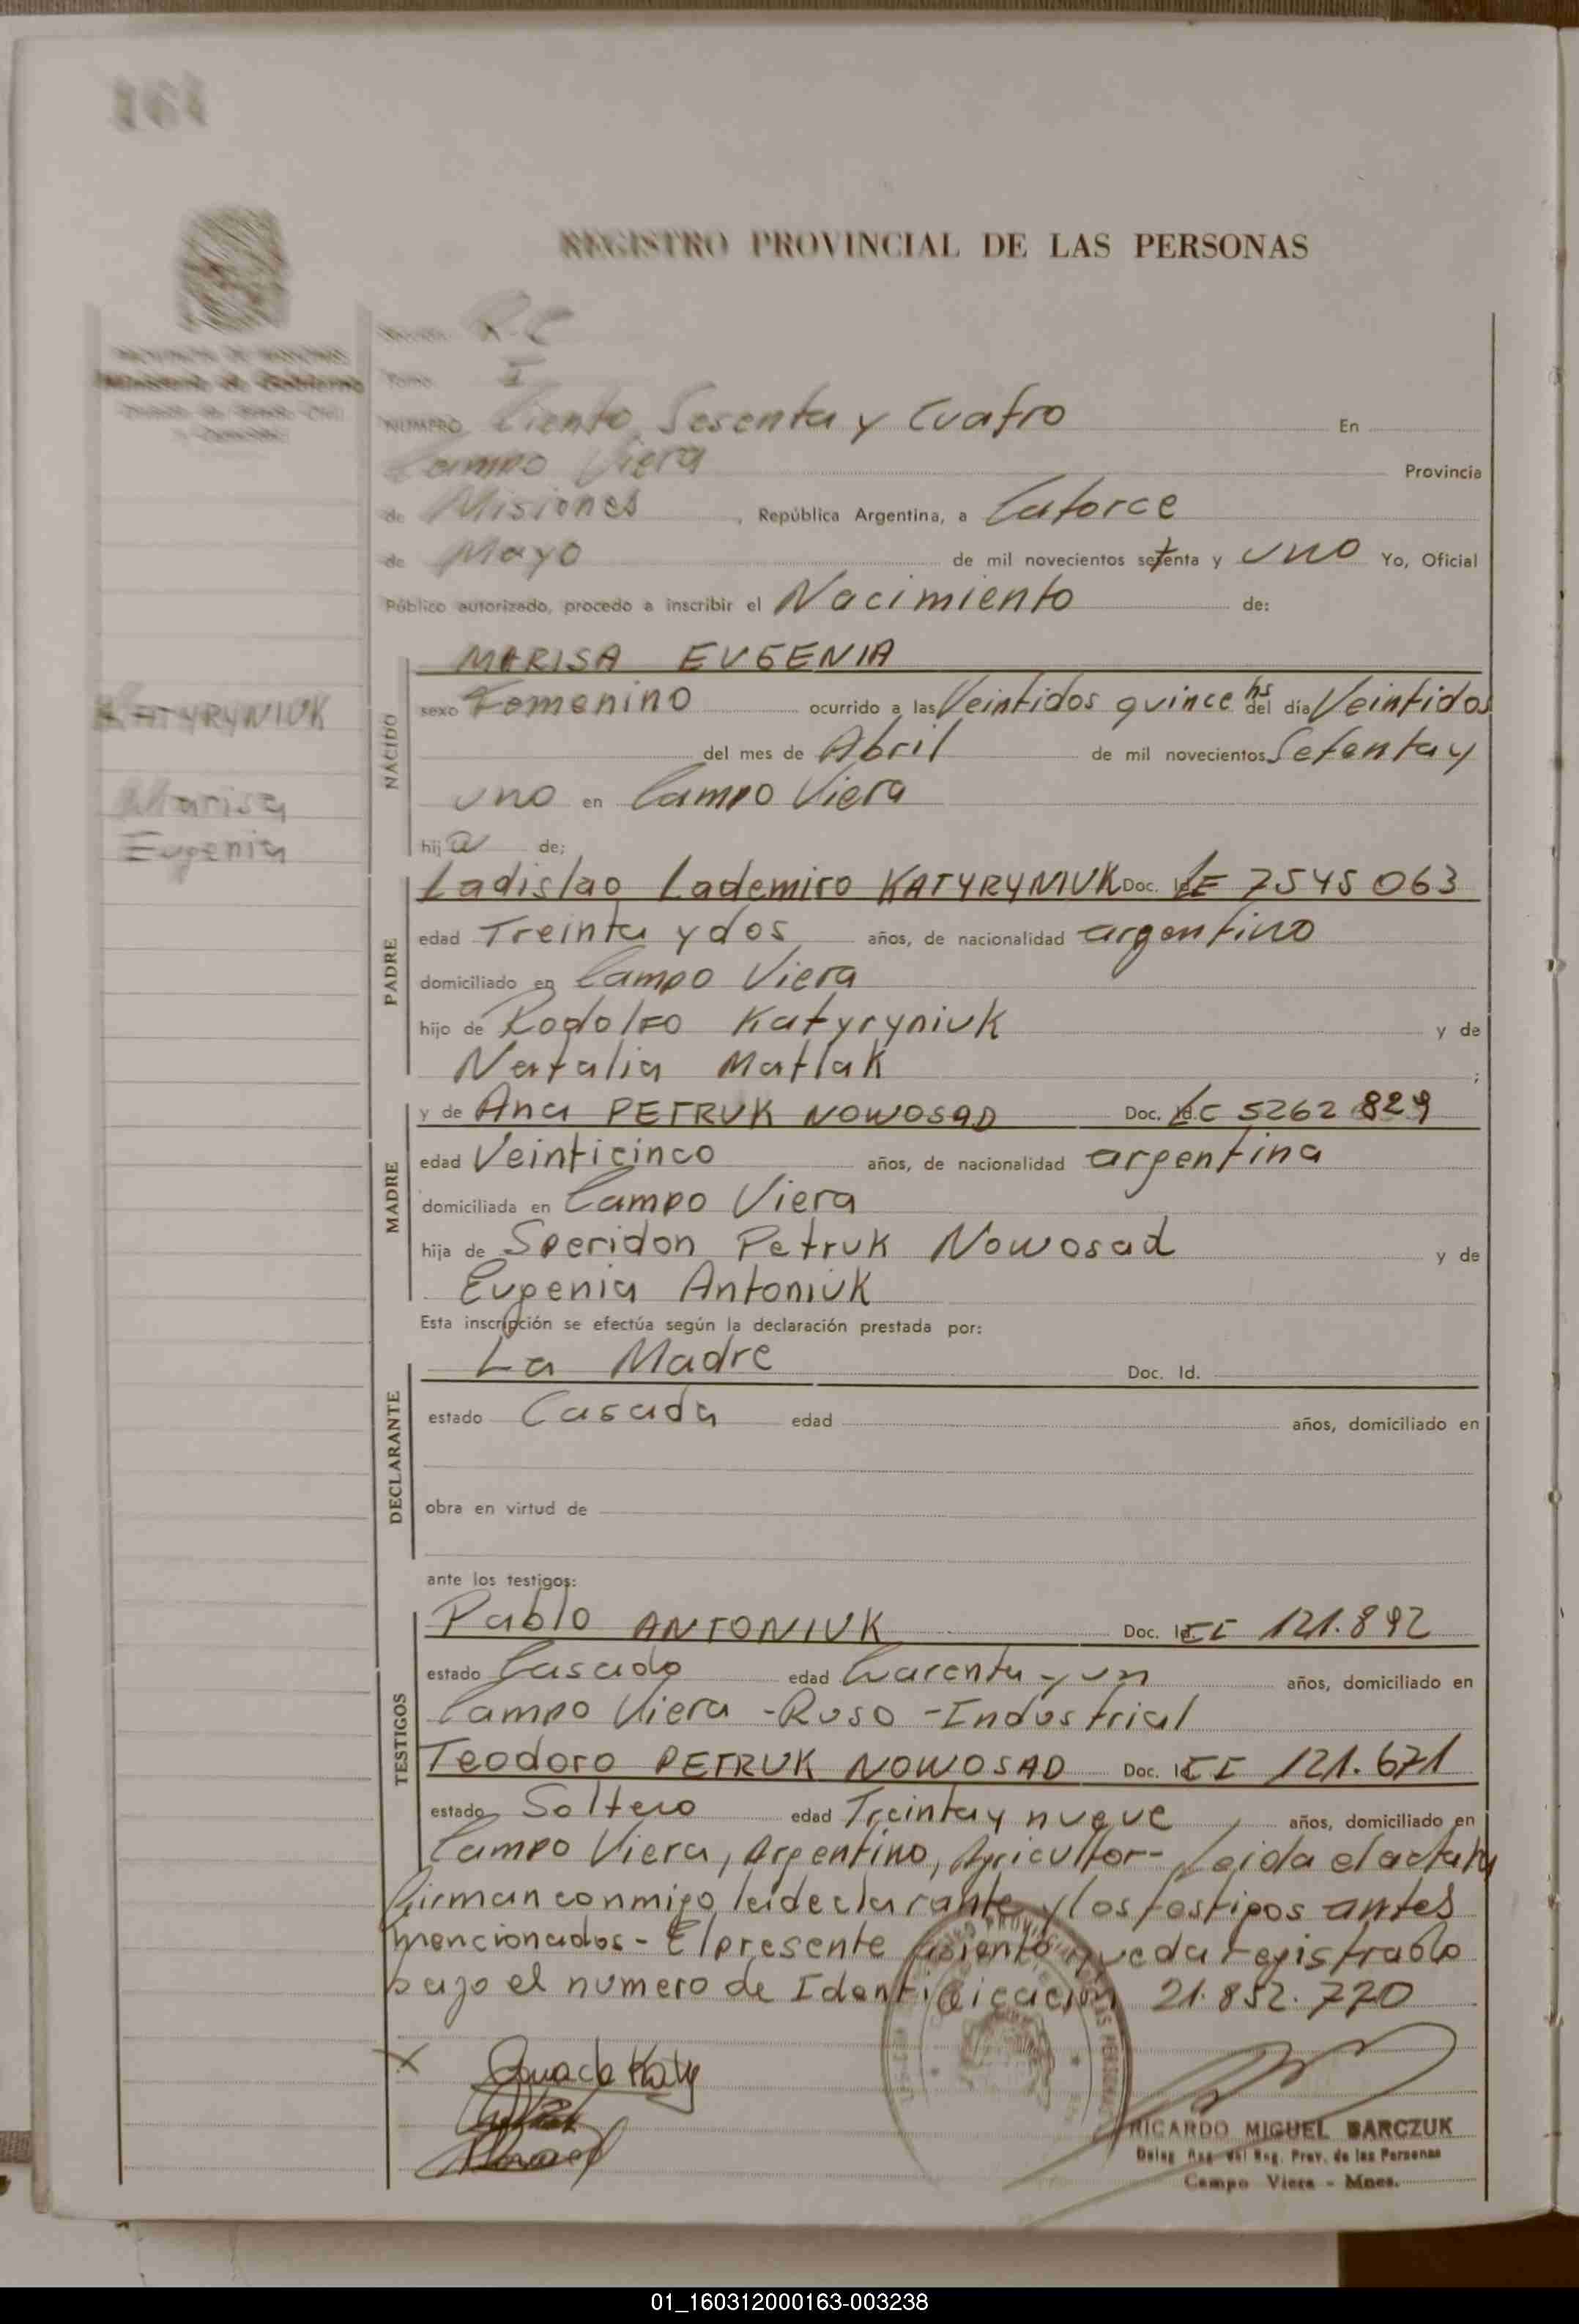 164
REGISTRO PROVINCIAL DE LAS PERSONAS
PROVINCIA DE MISIONES
Ministerio de Gobierno
Sección R.C
Tomo I
NUMERO Ciento Sesenta y Cuatro En
Campo Viera Provincia
de Misiones, República Argentina, a Catorce
de Mayo de mil novecientos setenta y uno Yo, Oficial
Público autorizado, procedo a inscribir el Nacimiento de:
KATYRYNIUK
Marisa
Eugenia
NACIDO
MARISA EUGENIA
sexo Femenino ocurrido a las Veintidos quince hs del día Veintidos
del mes de Abril de mil novecientos Setenta y
uno en Campo Viera
hija de;
PADRE
Ladislao Lademiro KATYRYNIUK Doc. LE 7545063
edad Treinta y dos años, de nacionalidad argentino
domiciliado en Campo Viera
hijo de Rodolfo Katyryniuk y de
Natalia Matlak ;
MADRE
y de Ana PETRUK NOWOSAD Doc. LC 5262829
edad Veinticinco años, de nacionalidad argentina
domiciliada en Campo Viera
hija de Speridon Petruk Nowosad y de
Eugenia Antoniuk
Esta inscripción se efectúa según la declaración prestada por:
DECLARANTE
La Madre Doc. Id.
estado Casada edad años, domiciliado en
obra en virtud de
ante los testigos:
TESTIGOS
Pablo ANTONIUK Doc. Id. CI 121.892
estado Casado edad Cuarenta y un años, domiciliado en
Campo Viera - Ruso - Industrial
Teodoro PETRUK NOWOSAD Doc. Id. CI 121.671
estado Soltero edad Treinta y nueve años, domiciliado en
Campo Viera, Argentino, Agricultor - Leida el acta la
firman conmigo, la declarante y los testigos antes
mencionados - El presente asiento queda registrado
bajo el numero de Identificación 21.852.770
RICARDO MIGUEL BARCZUK
Deleg. Reg. del Reg. Prov. de las Personas
Campo Viera - Mnes.
01_160312000163-003238